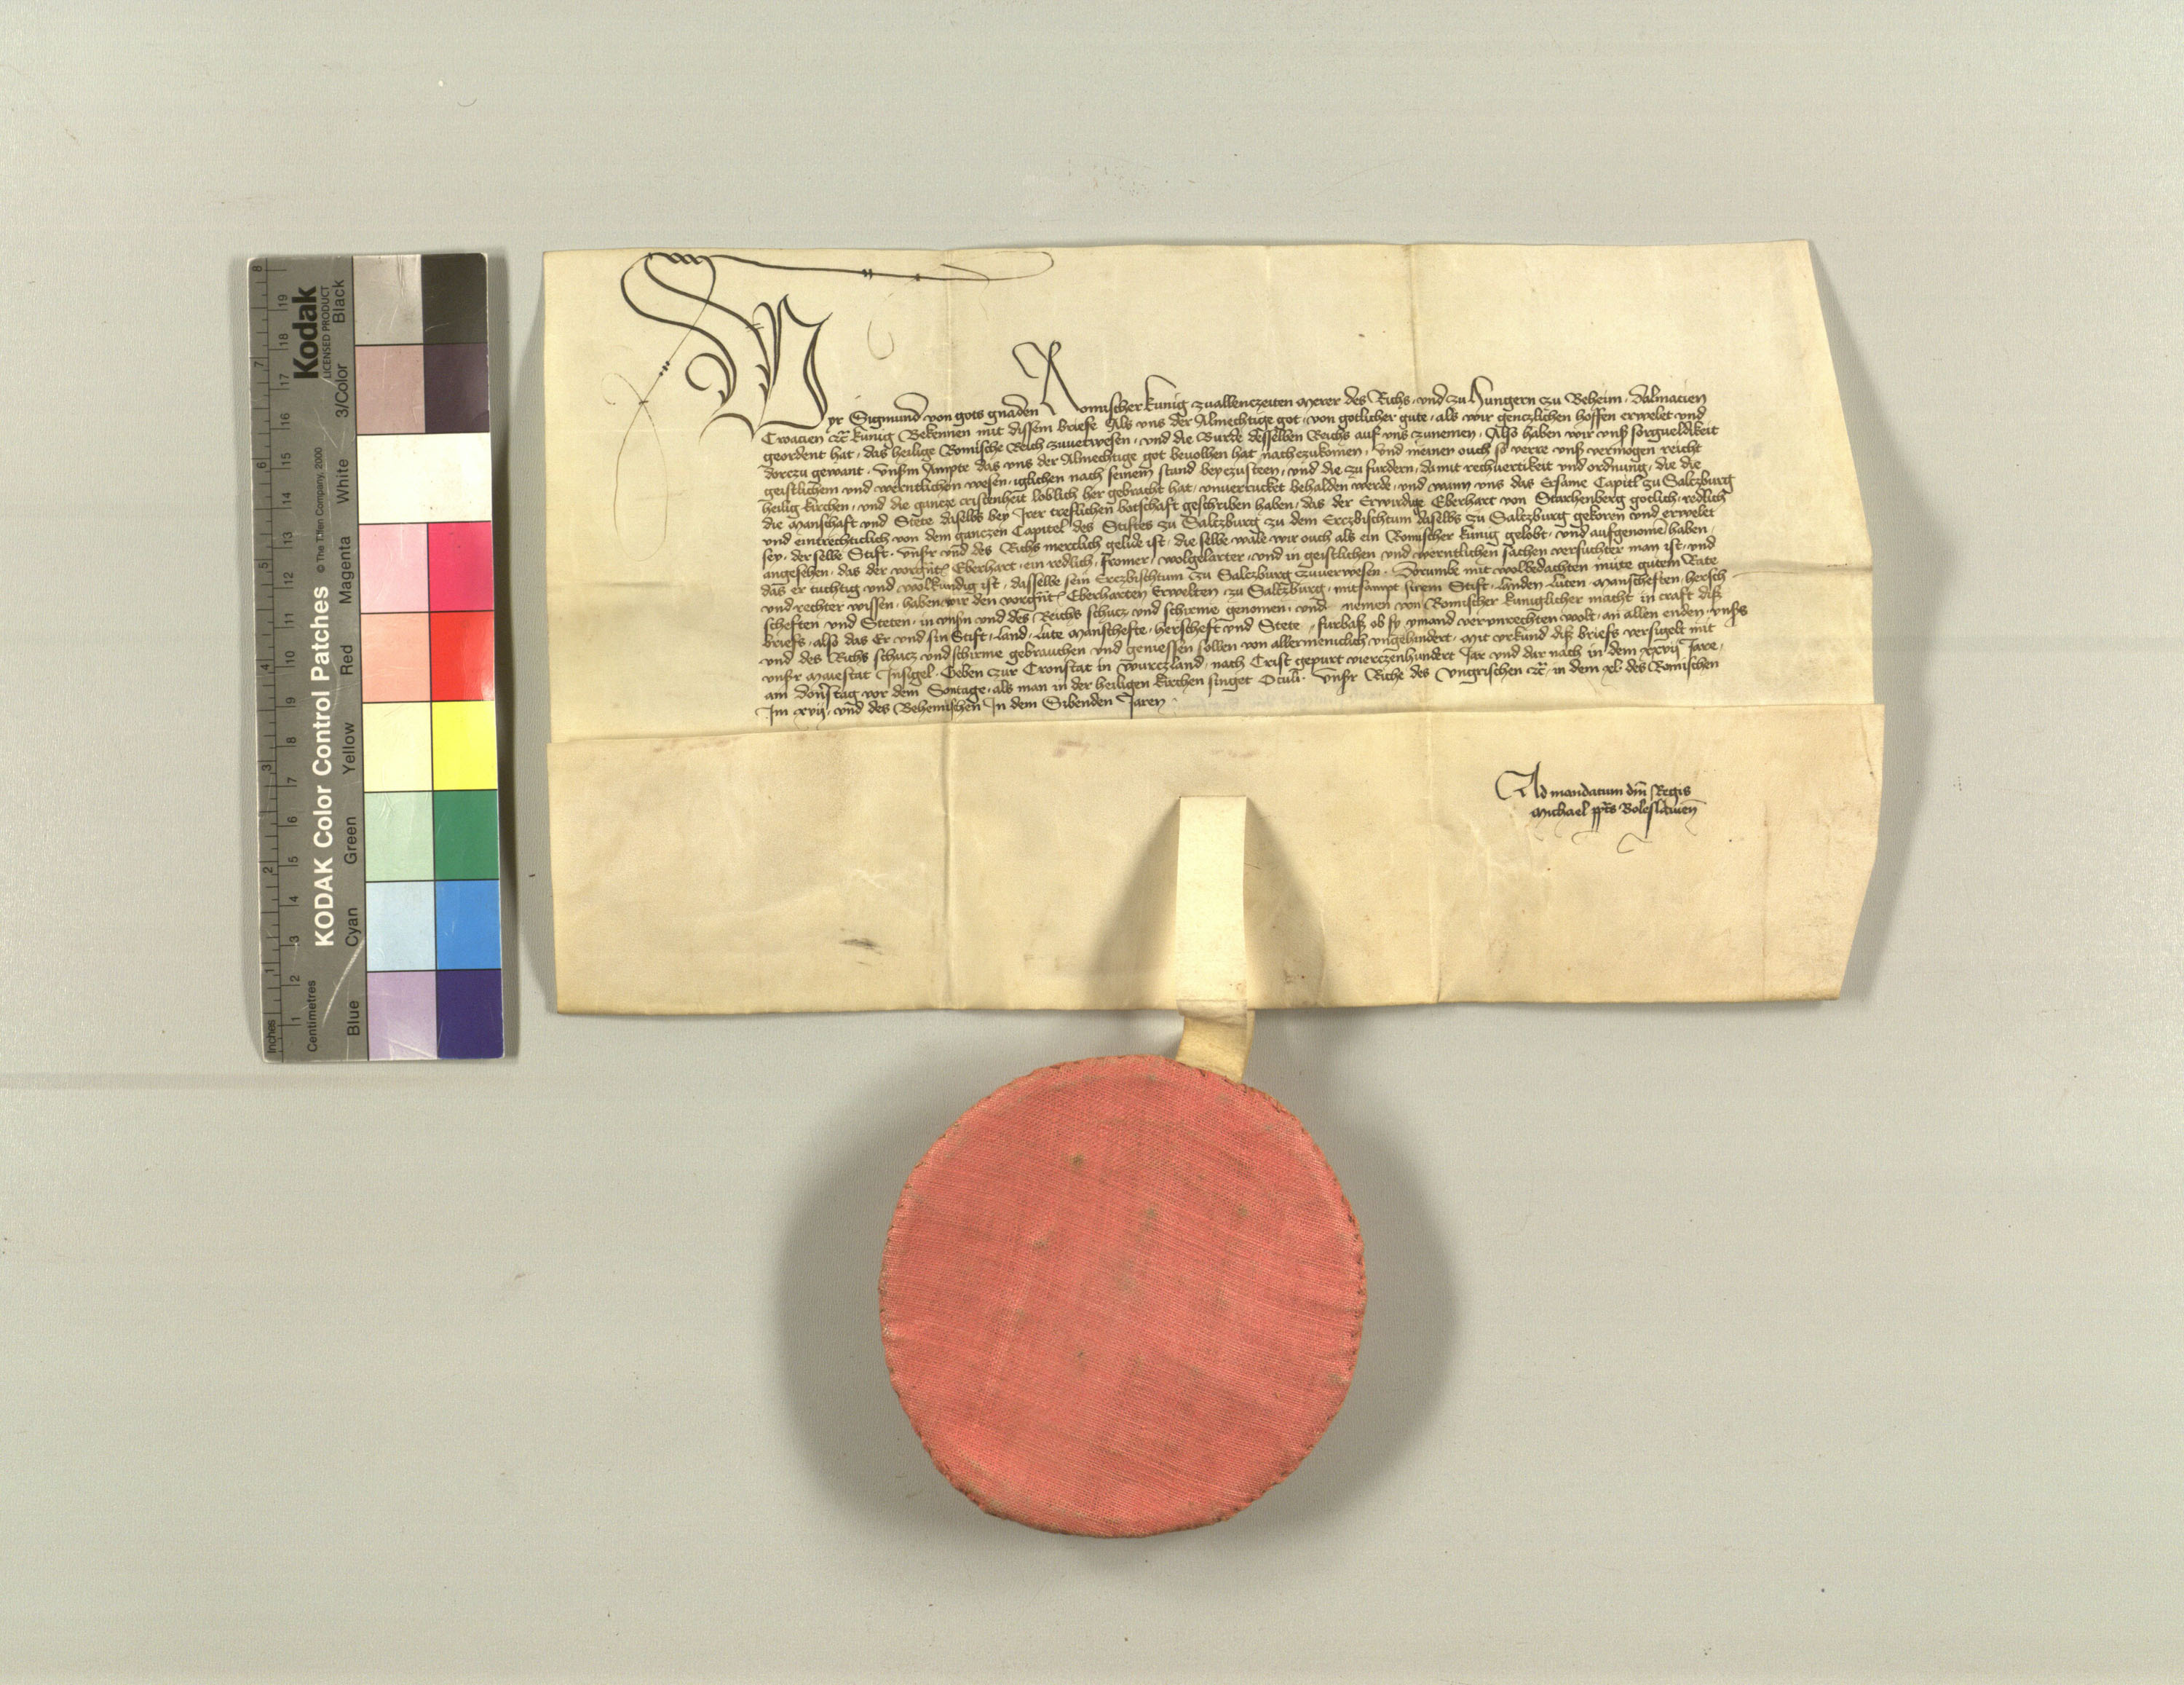 Wyr Sigmund von gots gnaden Romischer kunig zuallenczeiten Merer des Richs und zu Hungern zu Beheim Dalmacien
Croacien etc kunig Bekennen mit dissem briefe Als uns der Almechtige got von gotlicher gute als wir genczlichen hoffen erwelet und
geordent hat das heilige Romische Reich zuverwesen und die Burde desselben Reichs auf uns zunemen Also haben wir unß sorgueldikeit
dorczu gewant Unßm Ampte das uns der Almechtige got beuolhen hat nachczukomen und meinen ouch so verre unß vermogen reicht
geistlichem und werntlichen wesen iglichen nach seinem stand beyczusteen und die zu furdern damit rechuertikeit und ordnung die die
heilig kirchen und die gancze cristenheit loblich her gebracht hat unuerrucket behalden werde und wann uns das Ersame Capitl zu Saltzburg
die Manschaft und Stete daselbs bey Irer treflichen botschaft geschriben haben das der Erwirdige Eberhart von Starchenberg gotlich redlich
und eintrechticlich von dem ganczen Capitel des Stiftes zu Saltzburg zu dem Erczbischtum daselbs zu Saltzburg gekoren und erwelet
sey der selbe Stift Unßr und des Richs merclich gelide ist die selbe wale wir ouch als ein Romischer kunig gelobt und aufgenome haben
angesehen das der vorgnt Eberhart ein redlich fromer wolgelarter und in geistlichen und werntlichen sachen versuchter man ist und
das er tuchtig und wolkundig ist dasselbe sein Erczbischtum zu Saltzburg zuuerwesen Dorumbe mit wolbedachten mute gutem Rate
und rechter wissen haben wir den vorgnt Eberharten Erwelten zu Saltzburg mitsampt sinem Stift landen luten Manscheften hersch
scheften und Steten in unßn und des Reichs schucz und schirme genomen und nemen von Romischer kuniglicher macht in craft diß
briefs also das Er und sin Stift land lute Manschefte herscheft und Stete furbaß ob sy ymand verunrechten wolt an allen enden unßs
und des Richs schucz und schirme gebrauchen und geniessen sollen von allermeniclich ungehindert Mit urkund diß briefs versigelt mit
unßr Maiestat Insigel Geben zur Cronstat in Wurczland nach Crist gepurt vierczenhundert Jar und dar nach in dem xxvij Jare
am donrstag vor dem Sontage als man in der heiligen kirchen singet Oculi Unßr Riche des Ungrischen etc in dem xl des Romischen
Im xvij und des Behemischen In dem Sibenden Jaren
Ad mandatum dni Regis
Michael ppts Boleslauien
KODAK Color Control Patches
Kodak
LICENSED PRODUCT
© The Tiffen Company, 2000
Blue Cyan Green Yellow Red Magenta White 3/Color Black
Inches 1 2 3 4 5 6 7 8
Centimetres 1 2 3 4 5 6 7 8 9 10 11 12 13 14 15 16 17 18 19